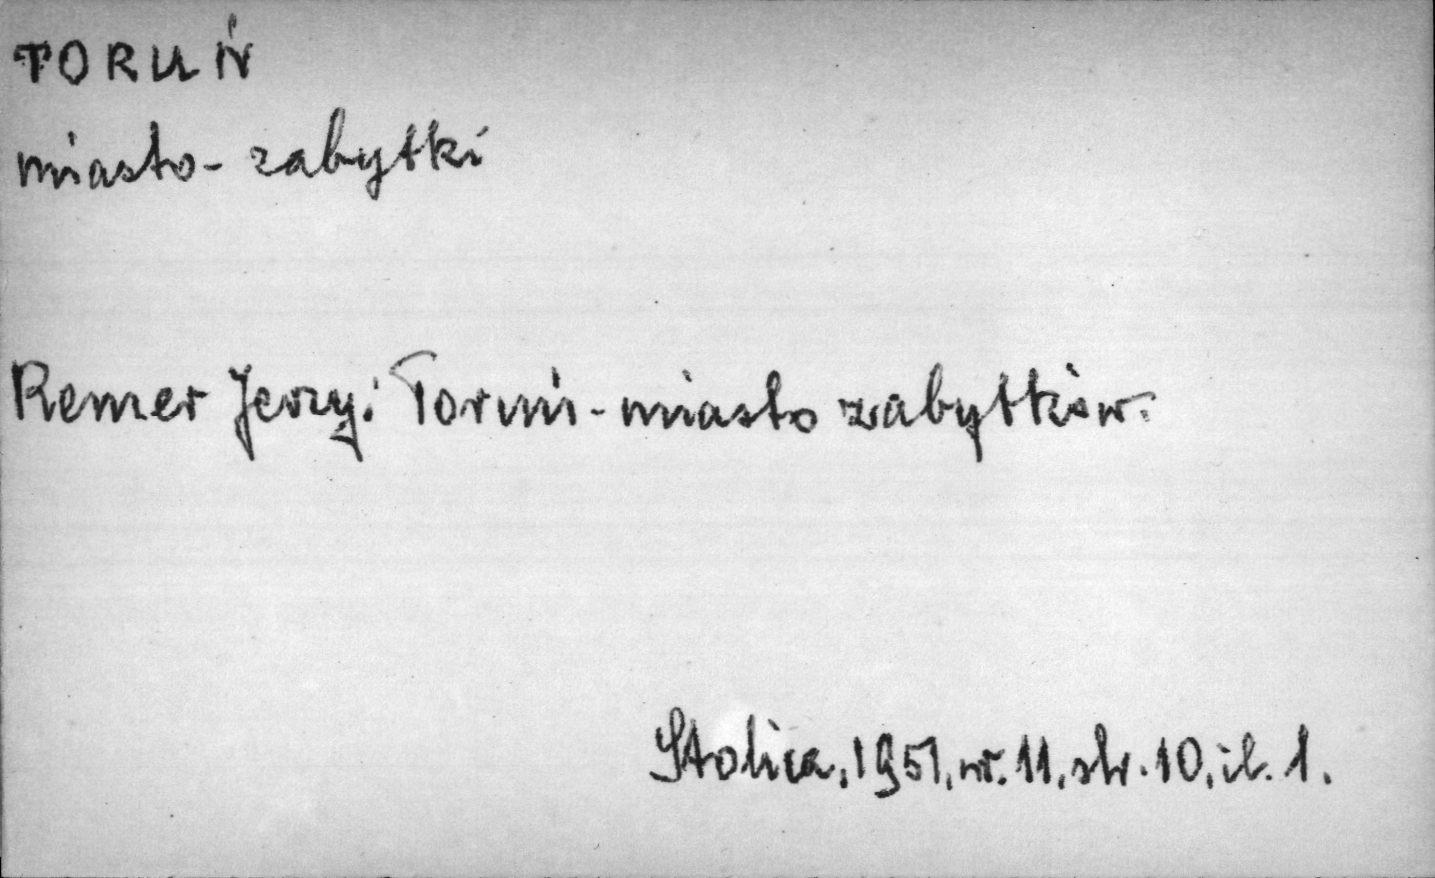 TORUŃ
miasto - zabytki
Remer Jerzy: Toruń - miasto zabytków.
Stolica, 1951, nr. 11, str. 10, il. 1.